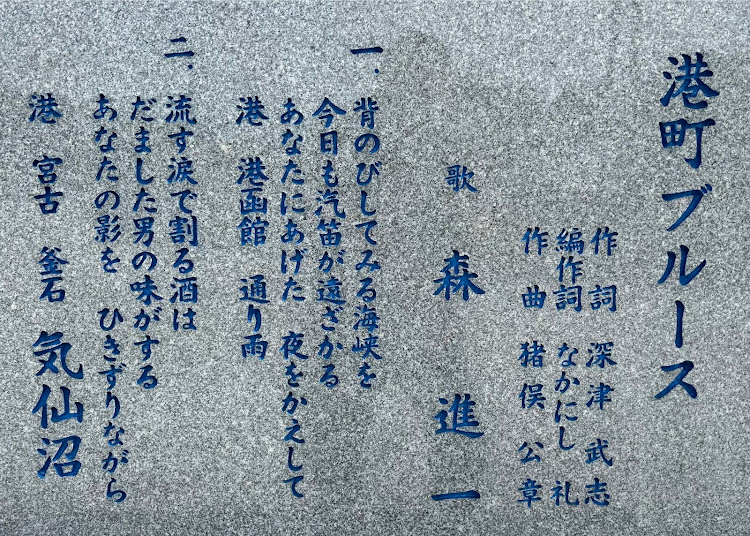 港町ブルース
作詞 深津武志
編作詞 なかにし礼
作曲 猪俣公章
歌 森 進一
一、背のびしてみる海峡を
今日も汽笛が遠ざかる
あなたにあげた 夜をかえして
港 港函館 通り雨
二、流す涙で割る酒は
だました男の味がする
あなたの影を ひきずりながら
港 宮古 釜石 気仙沼